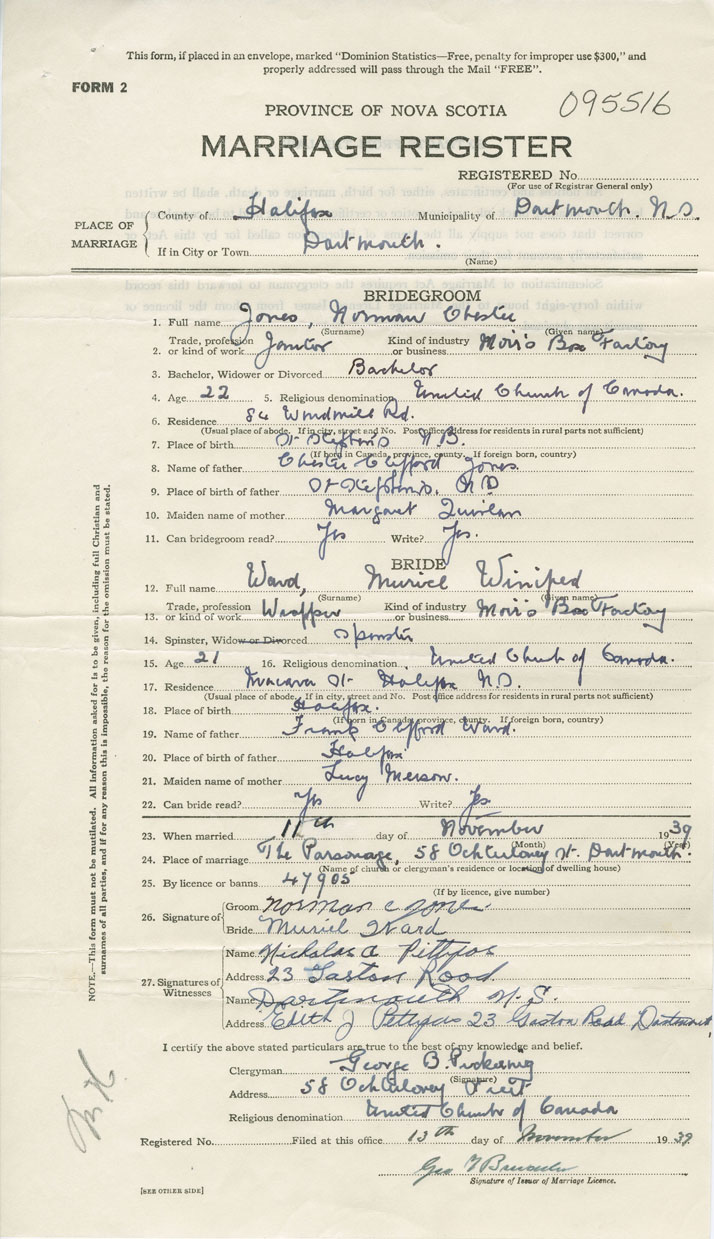 This form, if placed in an envelope, marked "Dominion Statistics—Free, penalty for improper use $300," and
properly addressed will pass through the Mail "FREE".
FORM 2
095516
PROVINCE OF NOVA SCOTIA
MARRIAGE REGISTER
REGISTERED No.
(For use of Registrar General only)
PLACE OF MARRIAGE
County of Halifax Municipality of Dartmouth. N.S.
If in City or Town Dartmouth.
(Name)
BRIDEGROOM
1. Full name Jones, Norman Chester
(Surname) (Given name)
2. Trade, profession or kind of work Janitor Kind of industry or business Moir's Box Factory
3. Bachelor, Widower or Divorced Bachelor
4. Age 22 5. Religious denomination United Church of Canada.
6. Residence 84 Windmill Rd.
(Usual place of abode. If in city, street and No. Post office address for residents in rural parts not sufficient)
7. Place of birth St Stephens N.B.
(If born in Canada, province, county. If foreign born, country)
8. Name of father Chester Clifford Jones.
9. Place of father St Stephens, N B
10. Maiden name of mother Margaret Quinlan
11. Can bridegroom read? Yes Write? Yes.
BRIDE
12. Full name Ward, Muriel Winifred
(Surname) (Given name)
13. Trade, profession or kind of work Wrapper Kind of industry or business Moir's Box Factory
14. Spinster, Widow or Divorced Spinster
15. Age 21 16. Religious denomination United Church of Canada.
17. Residence Macara St Halifax N.S.
(Usual place of abode. If in city, street and No. Post office address for residents in rural parts not sufficient)
18. Place of birth Halifax.
(If born in Canada, province, county. If foreign born, country)
19. Name of father Frank Clifford Ward.
20. Place of birth of father Halifax
21. Maiden name of mother Lucy Merson.
22. Can bride read? Yes Write? Yes
23. When married 11th day of November 1939
(Month) (Year)
24. Place of marriage The Parsonage, 58 Ochterloney St. Dartmouth.
(Name of church or clergyman's residence or location of dwelling house)
25. By licence or banns 47905
(If by licence, give number)
26. Signature of
Groom Norman C Jones
Bride Muriel Ward
27. Signatures of Witnesses
Name Nicholas A Pettipas
Address 23 Gaston Road
Name Dartmouth N.S.
Address Edith J Pettipas 23 Gaston Road Dartmouth
I certify the above stated particulars are true to the best of my knowledge and belief.
Clergyman George B. Pickering
(Signature)
Address 58 Ochterloney Street
Religious denomination United Church of Canada
Registered No. Filed at this office 13th day of November 1939
Signature of Issuer of Marriage Licence.
[SEE OTHER SIDE]
NOTE.—This form must not be mutilated. All Information asked for is to be given, including full Christian and
surnames of all parties, and if for any reason this is impossible, the reason for the omission must be stated.